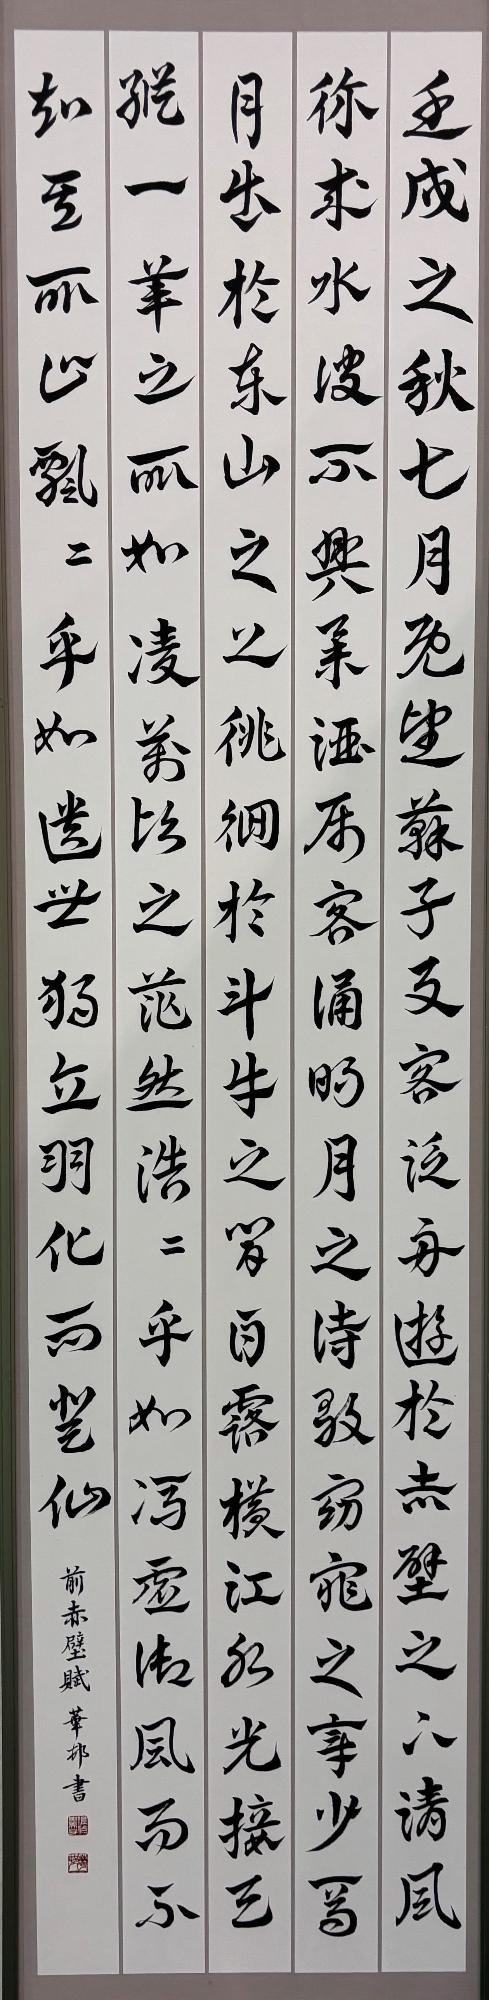 壬戌之秋七月既望蘇子與客泛舟遊於赤壁之下清風
徐來水波不興舉酒屬客誦明月之詩歌窈窕之章少焉
月出於東山之上徘徊於斗牛之間白露橫江水光接天
縱一葦之所如凌萬頃之茫然浩〻乎如馮虛御風而不
知其所止飄〻乎如遺世獨立羽化而登仙
前赤壁賦 華邨書